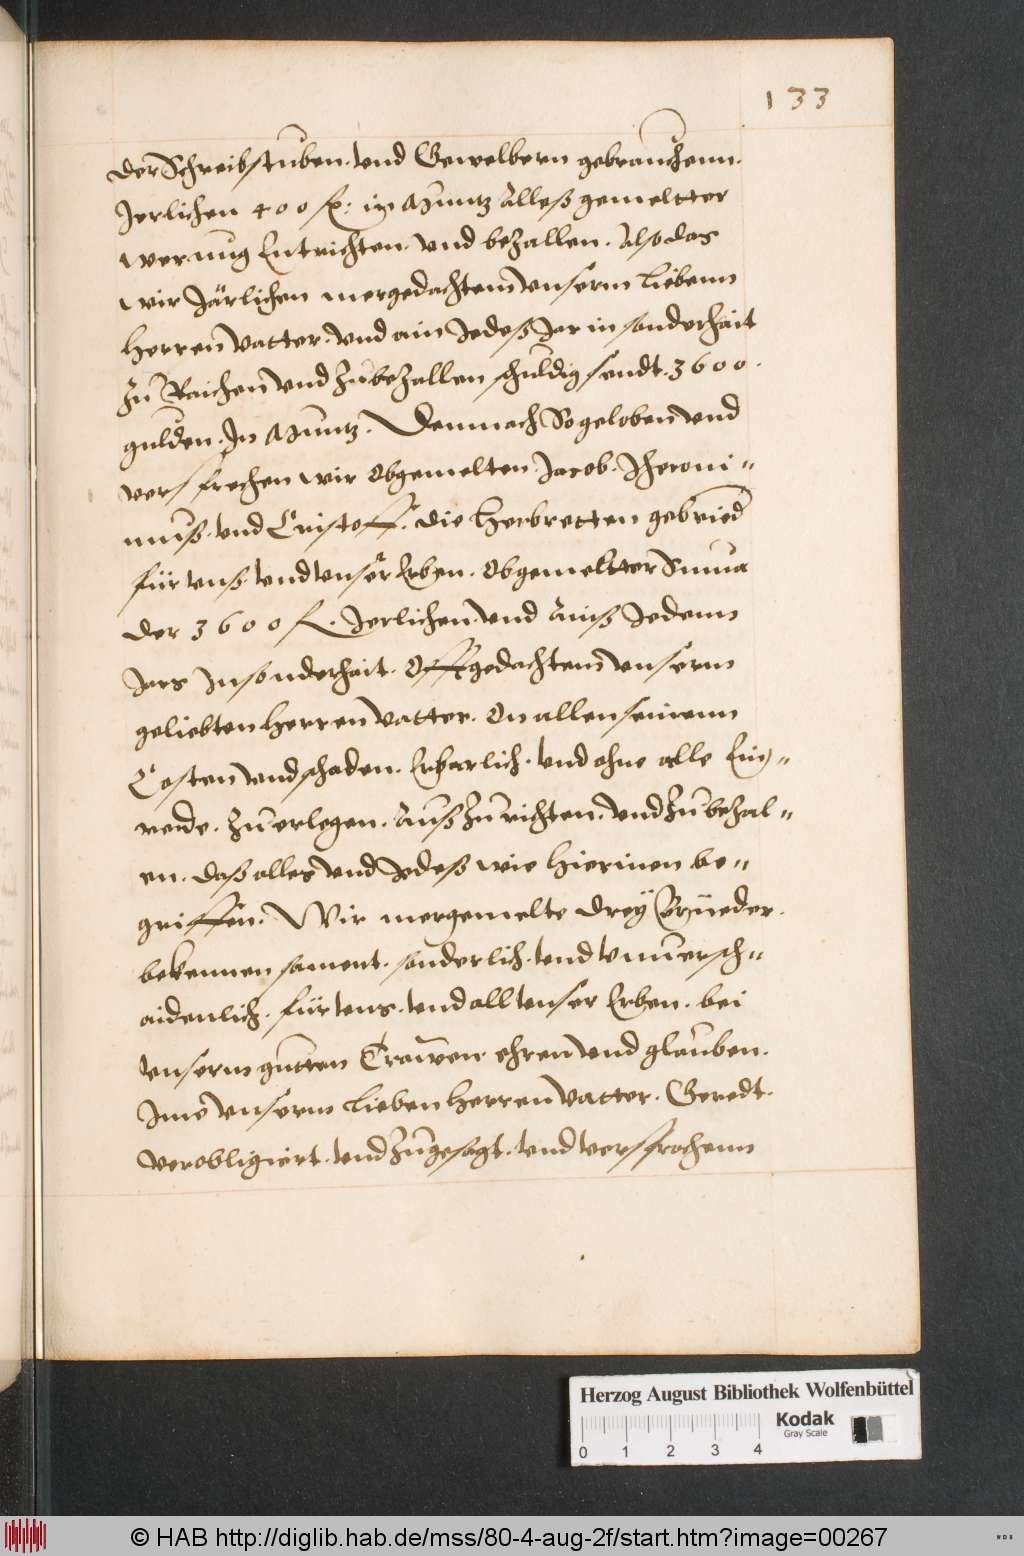 133
der Schreibstuben. vnd Gewelbern gebrauchenn.
Jerlichen 400 fl: in Müntz Alles gemeltter
werung Entrichten. vnd bezallen. Also das
wir Järlichen mergedachtem vnserm liebenn
Herren Vatter. vnd ain Jedes Jar in sonderhait
Zu Raichen vnd Zubezallen schuldig sendt. 3600.
gulden. In Müntz. Demnach So geloben vnd
versprechen wir Obgemelten Jacob. Jheroni-
muß. vnd Cristoff. die Herbretten gebried
für vnß. vnd vnser Erben. Obgemeltter Suma
der 3600 fl. Jerlichen. vnd Ainß Jedenn
Jars Insonderhait. Offtgedachtem vnserm
geliebten Herren Vatter. On allen seinenn
Costen vnd schaden. Erbarlich. vnd ohne alle Ein-
rede. Zu erlegen. Auß Zu richten. vnd Zu bezal-
en. daß alles vnd Jedeß wie Hierinen be-
griffen. Wir mergemelte drey Brüeder.
bekennen sament. sonderlich. vnd vnuersch-
aidenlich. für vns. vnd all vnser Erben. bei
vnserm gutten Trawen ehren vnd glauben.
Ime vnserm lieben Herren Vatter. Geredt.
verobligiert. vnd Zugesagt. vnd versprochenn
Herzog August Bibliothek Wolfenbüttel
Kodak
Gray Scale
0 1 2 3 4
© HAB http://diglib.hab.de/mss/80-4-aug-2f/start.htm?image=00267